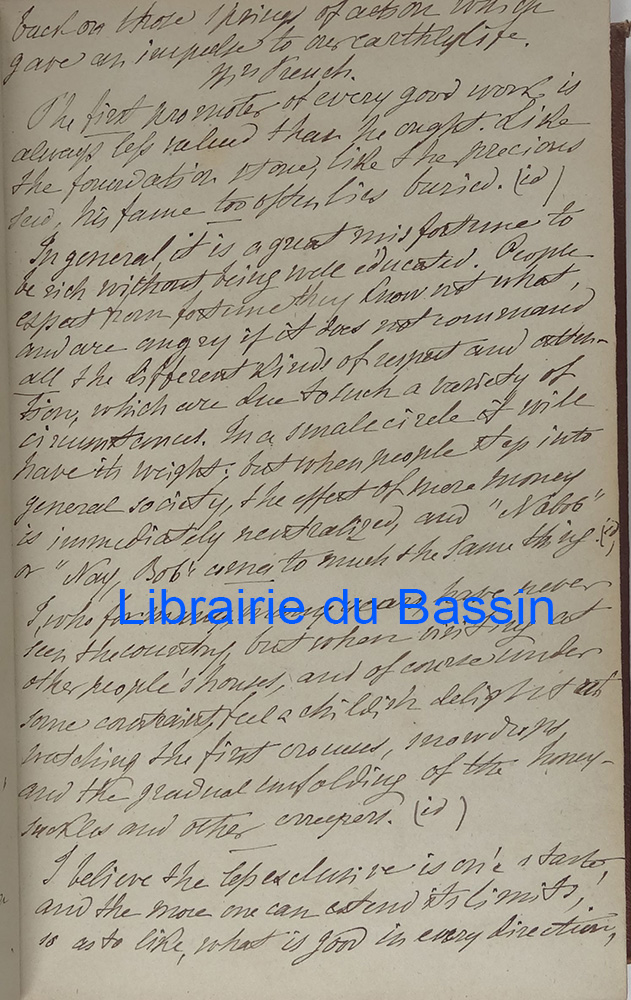 back on those springs of action which
gave an impulse to our earthly life.
Mrs Trench.
The first promoter of every good work is
always less valued than he ought. Like
the foundation stone, like the precious
seed, his fame too often lies buried. (id)
In general, it is a great misfortune to
be rich without being well educated. People
expect from fortune they know not what,
and are angry if it does not command
all the different kinds of respect and atten-
tion, which are due to such a variety of
circumstances. In a small circle it will
have its weight; but when people step into
general society, the effect of mere money
is immediately neutralized, and "Nabob"
or "Nay, Bob" comes to much the same thing. (id)
I, who for many many years have never
seen the country, but when visiting at
other people's houses, and of course under
some constraint, feel a childish delight at
watching the first crocuses, snowdrops,
and the gradual unfolding of the honey-
suckles and other creepers. (id)
I believe the less exclusive is one's taste,
and the more one can extend its limits,
so as to like, what is good in every direction,
Librairie du Bassin